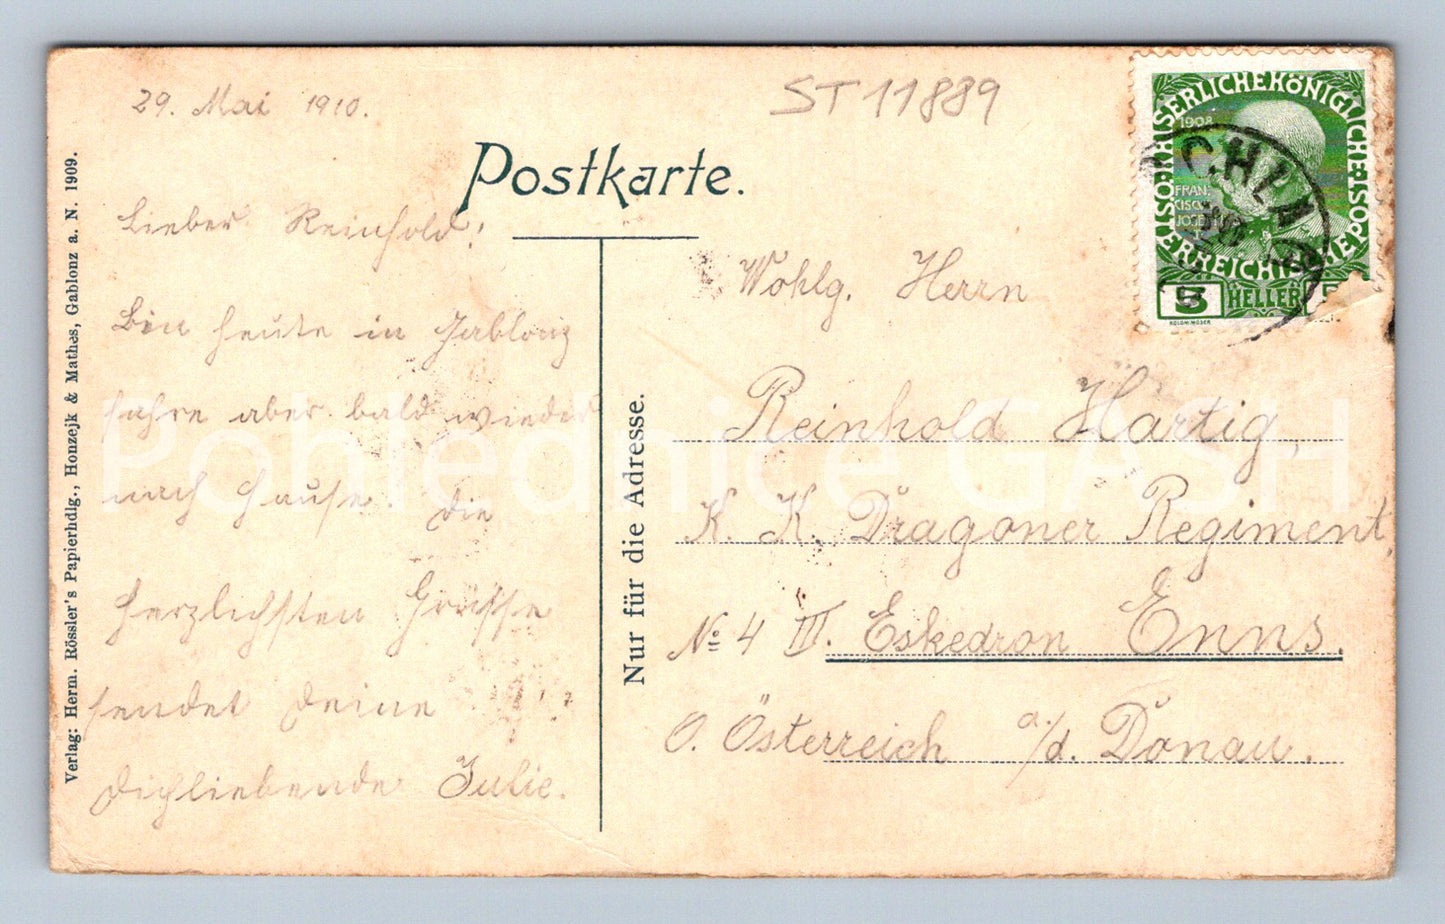 29. Mai 1910.
ST 11889
Postkarte.
Lieber Reinhold!
Bin heute in Gablonz
fahre aber bald wieder
nach Hause. Die
herzlichsten Grüsse
sendet Deine
Dichliebende Julie.
Verlag: Herm. Rössler's Papierhdlg., Honzejk & Mathes, Gablonz a. N. 1909.
Nur für die Adresse.
Wohlg. Herrn
Reinhold Hartig,
K. K. Dragoner Regiment,
№ 4 III. Eskedron Enns.
O. Österreich a./d. Donau.
KAISERLICHE KÖNIGLICHE
ÖSTERREICHISCHE POST
1908
FRAN
CISCUS
JOSEF
5 HELLER
Pohlednice GASH